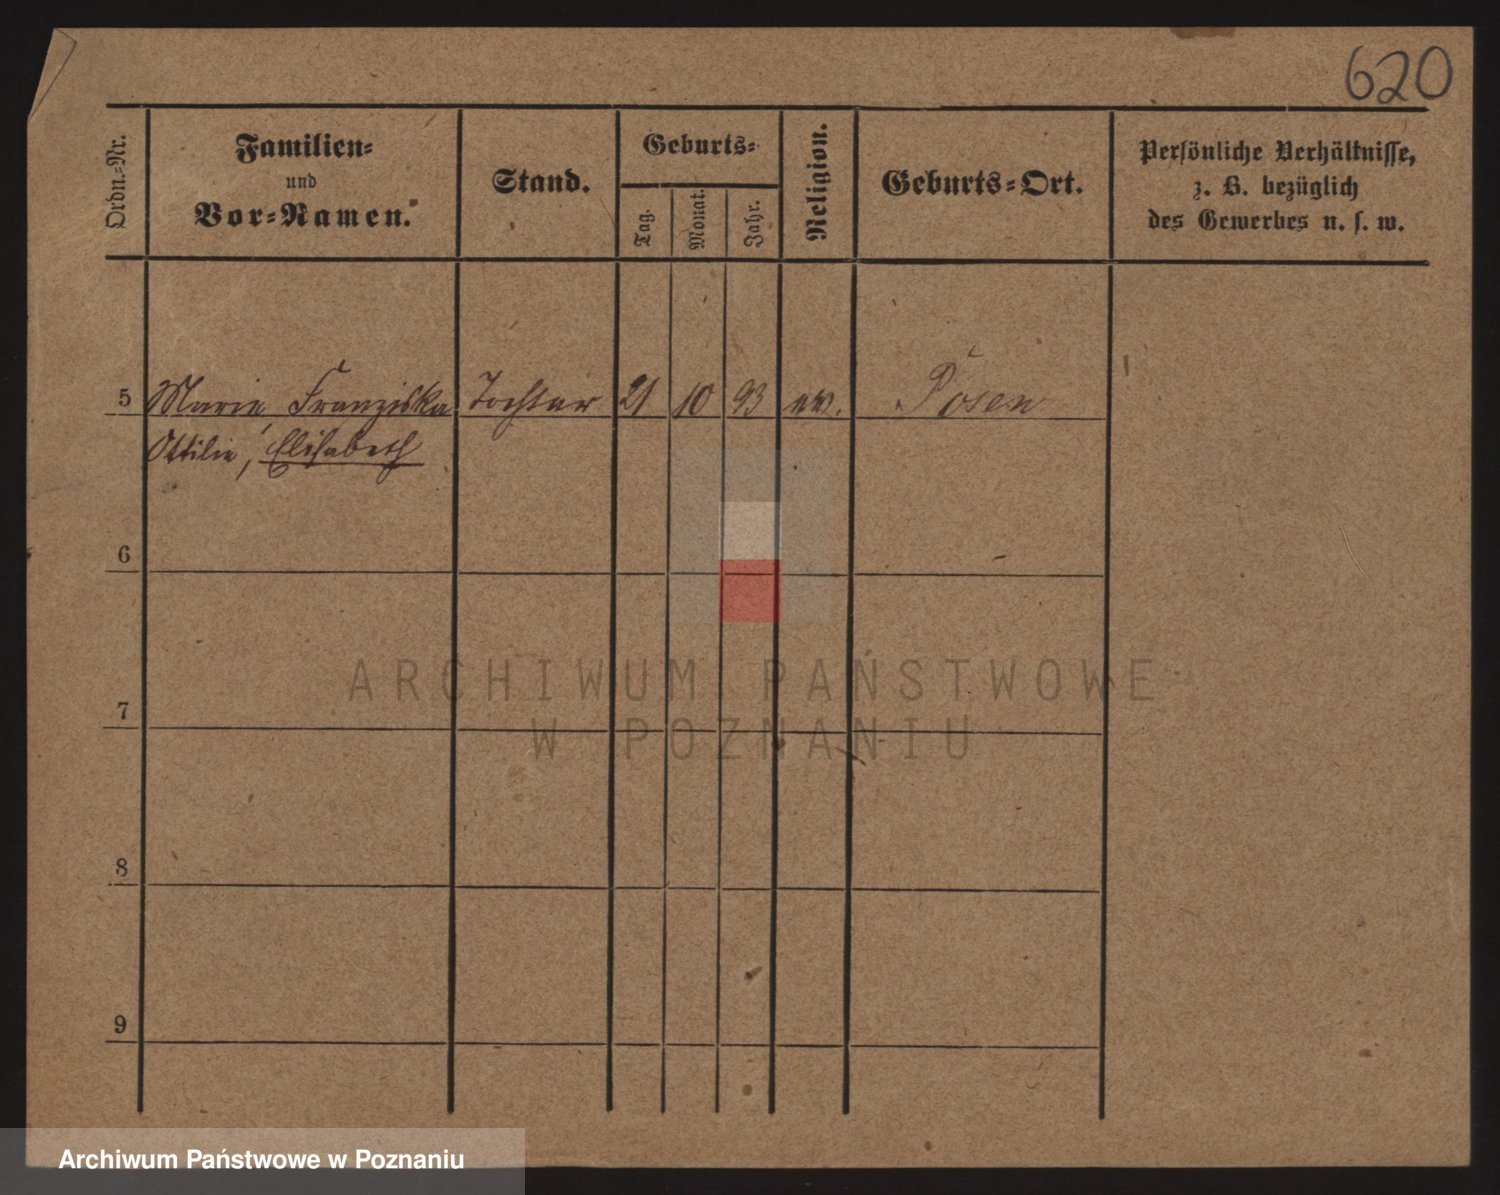 620
Ordn.-Nr.
Familien-
und
Vor-Namen.
Stand.
Geburts-
Tag.
Monat.
Jahr.
Religion.
Geburts-Ort.
Persönliche Verhältnisse,
z. B. bezüglich
des Gewerbes u. s. w.
5 Marie, Franziska Tochter 21 10 93 ev. Posen
Ottilie, Elisabeth
6
7
8
9
ARCHIWUM PAŃSTWOWE
W POZNANIU
Archiwum Państwowe w Poznaniu